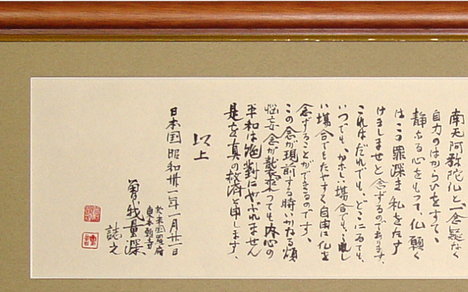 南无阿弥陀仏と念じ疑なく
自力のはからひをすてゝ
静かな心をもって仏願く
はこの罪深き私をたす
けましませと念ずるのであります
これはだれでも、どこにゐても、
いつでも、かなしい場合でも、うれし
い場合でもたやすく自由に仏を
念ずることができるのです、
この念が現前する時いかなる煩
悩妄念が襲来しても内心の
平和は絶対にやぶれません
是を真の救済と申します、
以上
日本国 昭和卅一年一月廿一日
於米国羅府
東本願寺
曽我量深
誌之